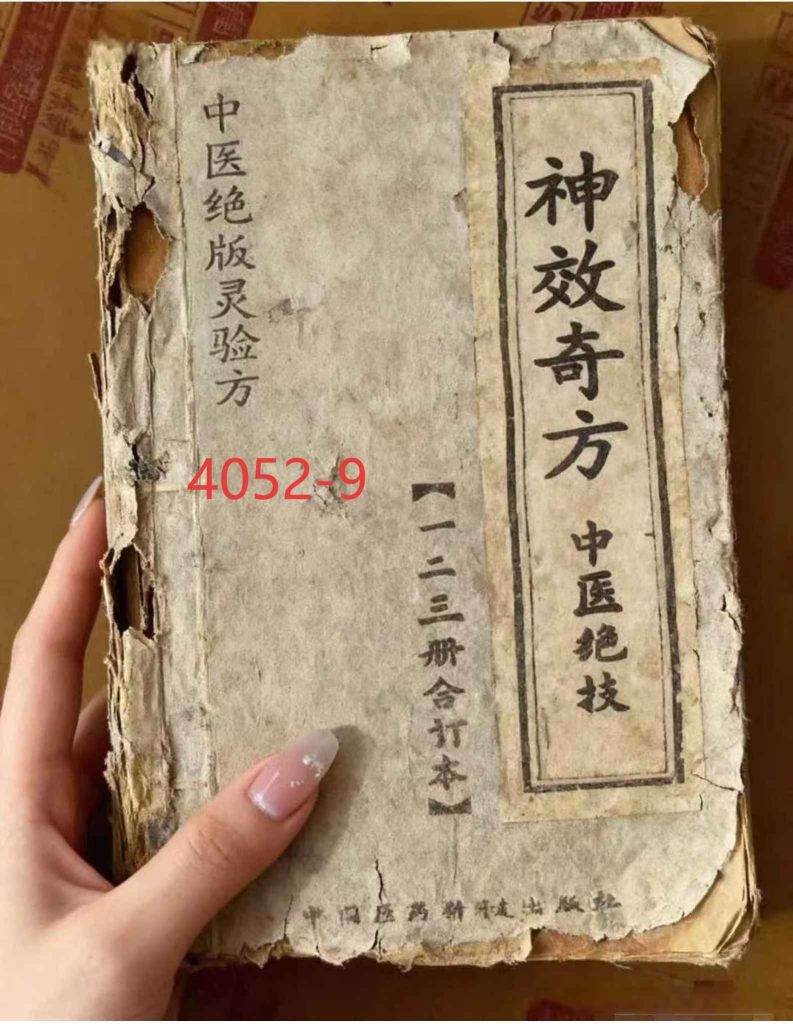 神效奇方 中医绝技
【一二三册合订本】
中医绝版灵验方
4052-9
中国医药科技出版社